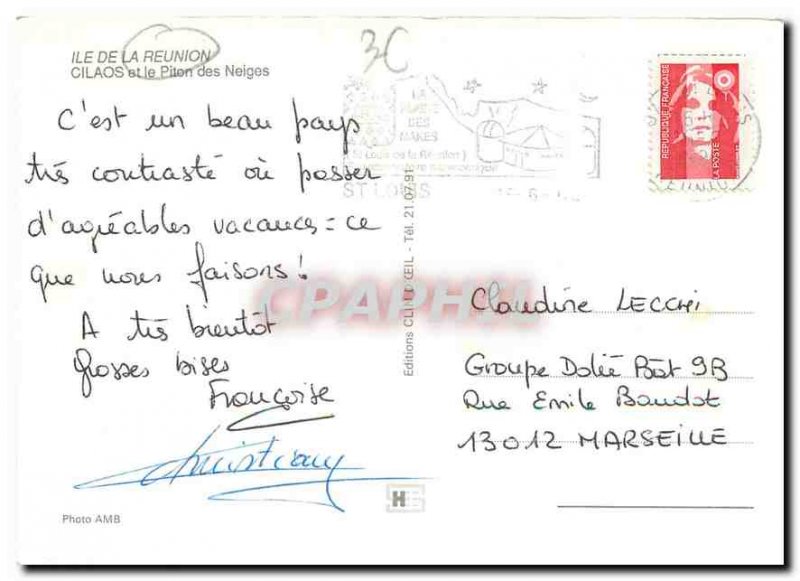 ILE DE LA REUNION
CILAOS et le Piton des Neiges
3€
C'est un beau pays
très contrasté où passer
d'agréables vacances = ce
que nous faisons !
A très bientôt
Grosses bises
Françoise
Christian
Photo AMB
LA
DES
MAKES
ST LOUIS
Editions CLIN D'ŒIL - Tél. 21.07.91
CPAPHIL
REPUBLIQUE FRANÇAISE
LA POSTE
Claudine LECCHI
Groupe Dolée Bât 9B
Rue Emile Baudot
13012 MARSEILLE